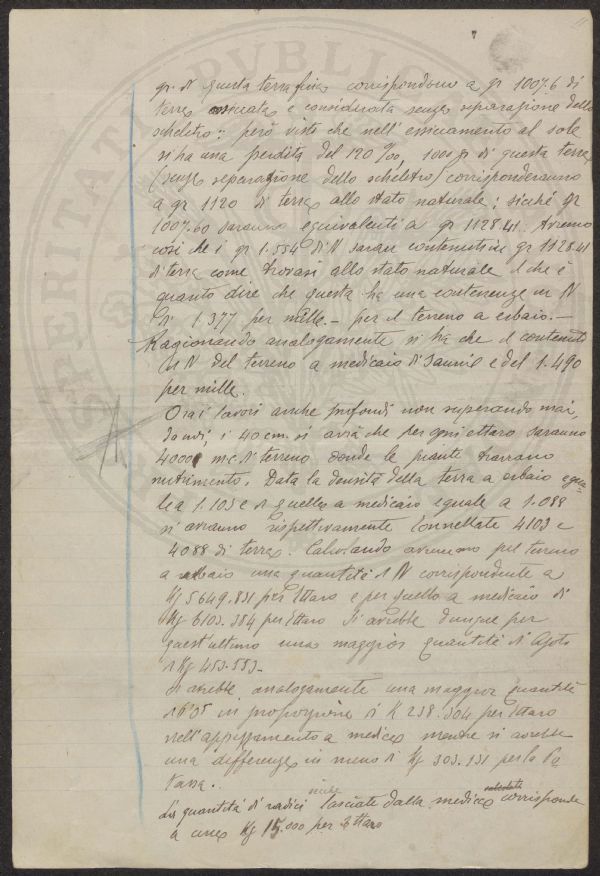 7
11
gr. di questa terra fina corrispondono a gr 1007.6 di
terra essicata e considerata senza separazione dello
scheletro: però visto che nell'essicamento al sole
si ha una perdita del 120 ‰, 1000 gr di questa terra
(senza separazione dello scheletro) corrisponderanno
a gr 1120 di terra allo stato naturale; sicché gr
1007.60 saranno equivalenti a gr 1128.41. Avremo
così che i gr 1.554 di N saran contenuti in gr 1128.41
di terra come trovasi allo stato naturale il che è
quanto dire che questa ha una contenenza in N
di 1.377 per mille. – per il terreno a erbaio. –
Ragionando analogamente si ha che il contenuto
in N del terreno a medicaio di è del 1.490
per mille.
Ora i lavori anche profondi non superando mai,
i 40 cm. si avrà che per ogni ettaro saranno
4000 m.c. di terreno donde le piante trarranno
nutrimento. Data la densità della terra a erbaio egua-
le a 1.103 e di quella a medicaio eguale a 1.088
si avranno rispettivamente tonnellate 4103 e
4088 di terra. Calcolando avremmo pel terreno
a erbaio una quantità di N corrispondente a
Kg 5649.831 per Ettaro e per quello a medicaio di
Kg 6103.384 per Ettaro Si avrebbe dunque per
quest'ultimo una maggior quantità d'Azoto
di Kg 453.553 –
Si avrebbe analogamente una maggior quantità
di in proporzione di K 238.304 per Ettaro
nell'appezzamento a medica mentre si avrebbe
una differenza in meno di Kg 303.131 per la Po
tassa. .
La quantità di radici lasciate dalla medica corrisponde
a circa Kg 15.000 per Ettaro